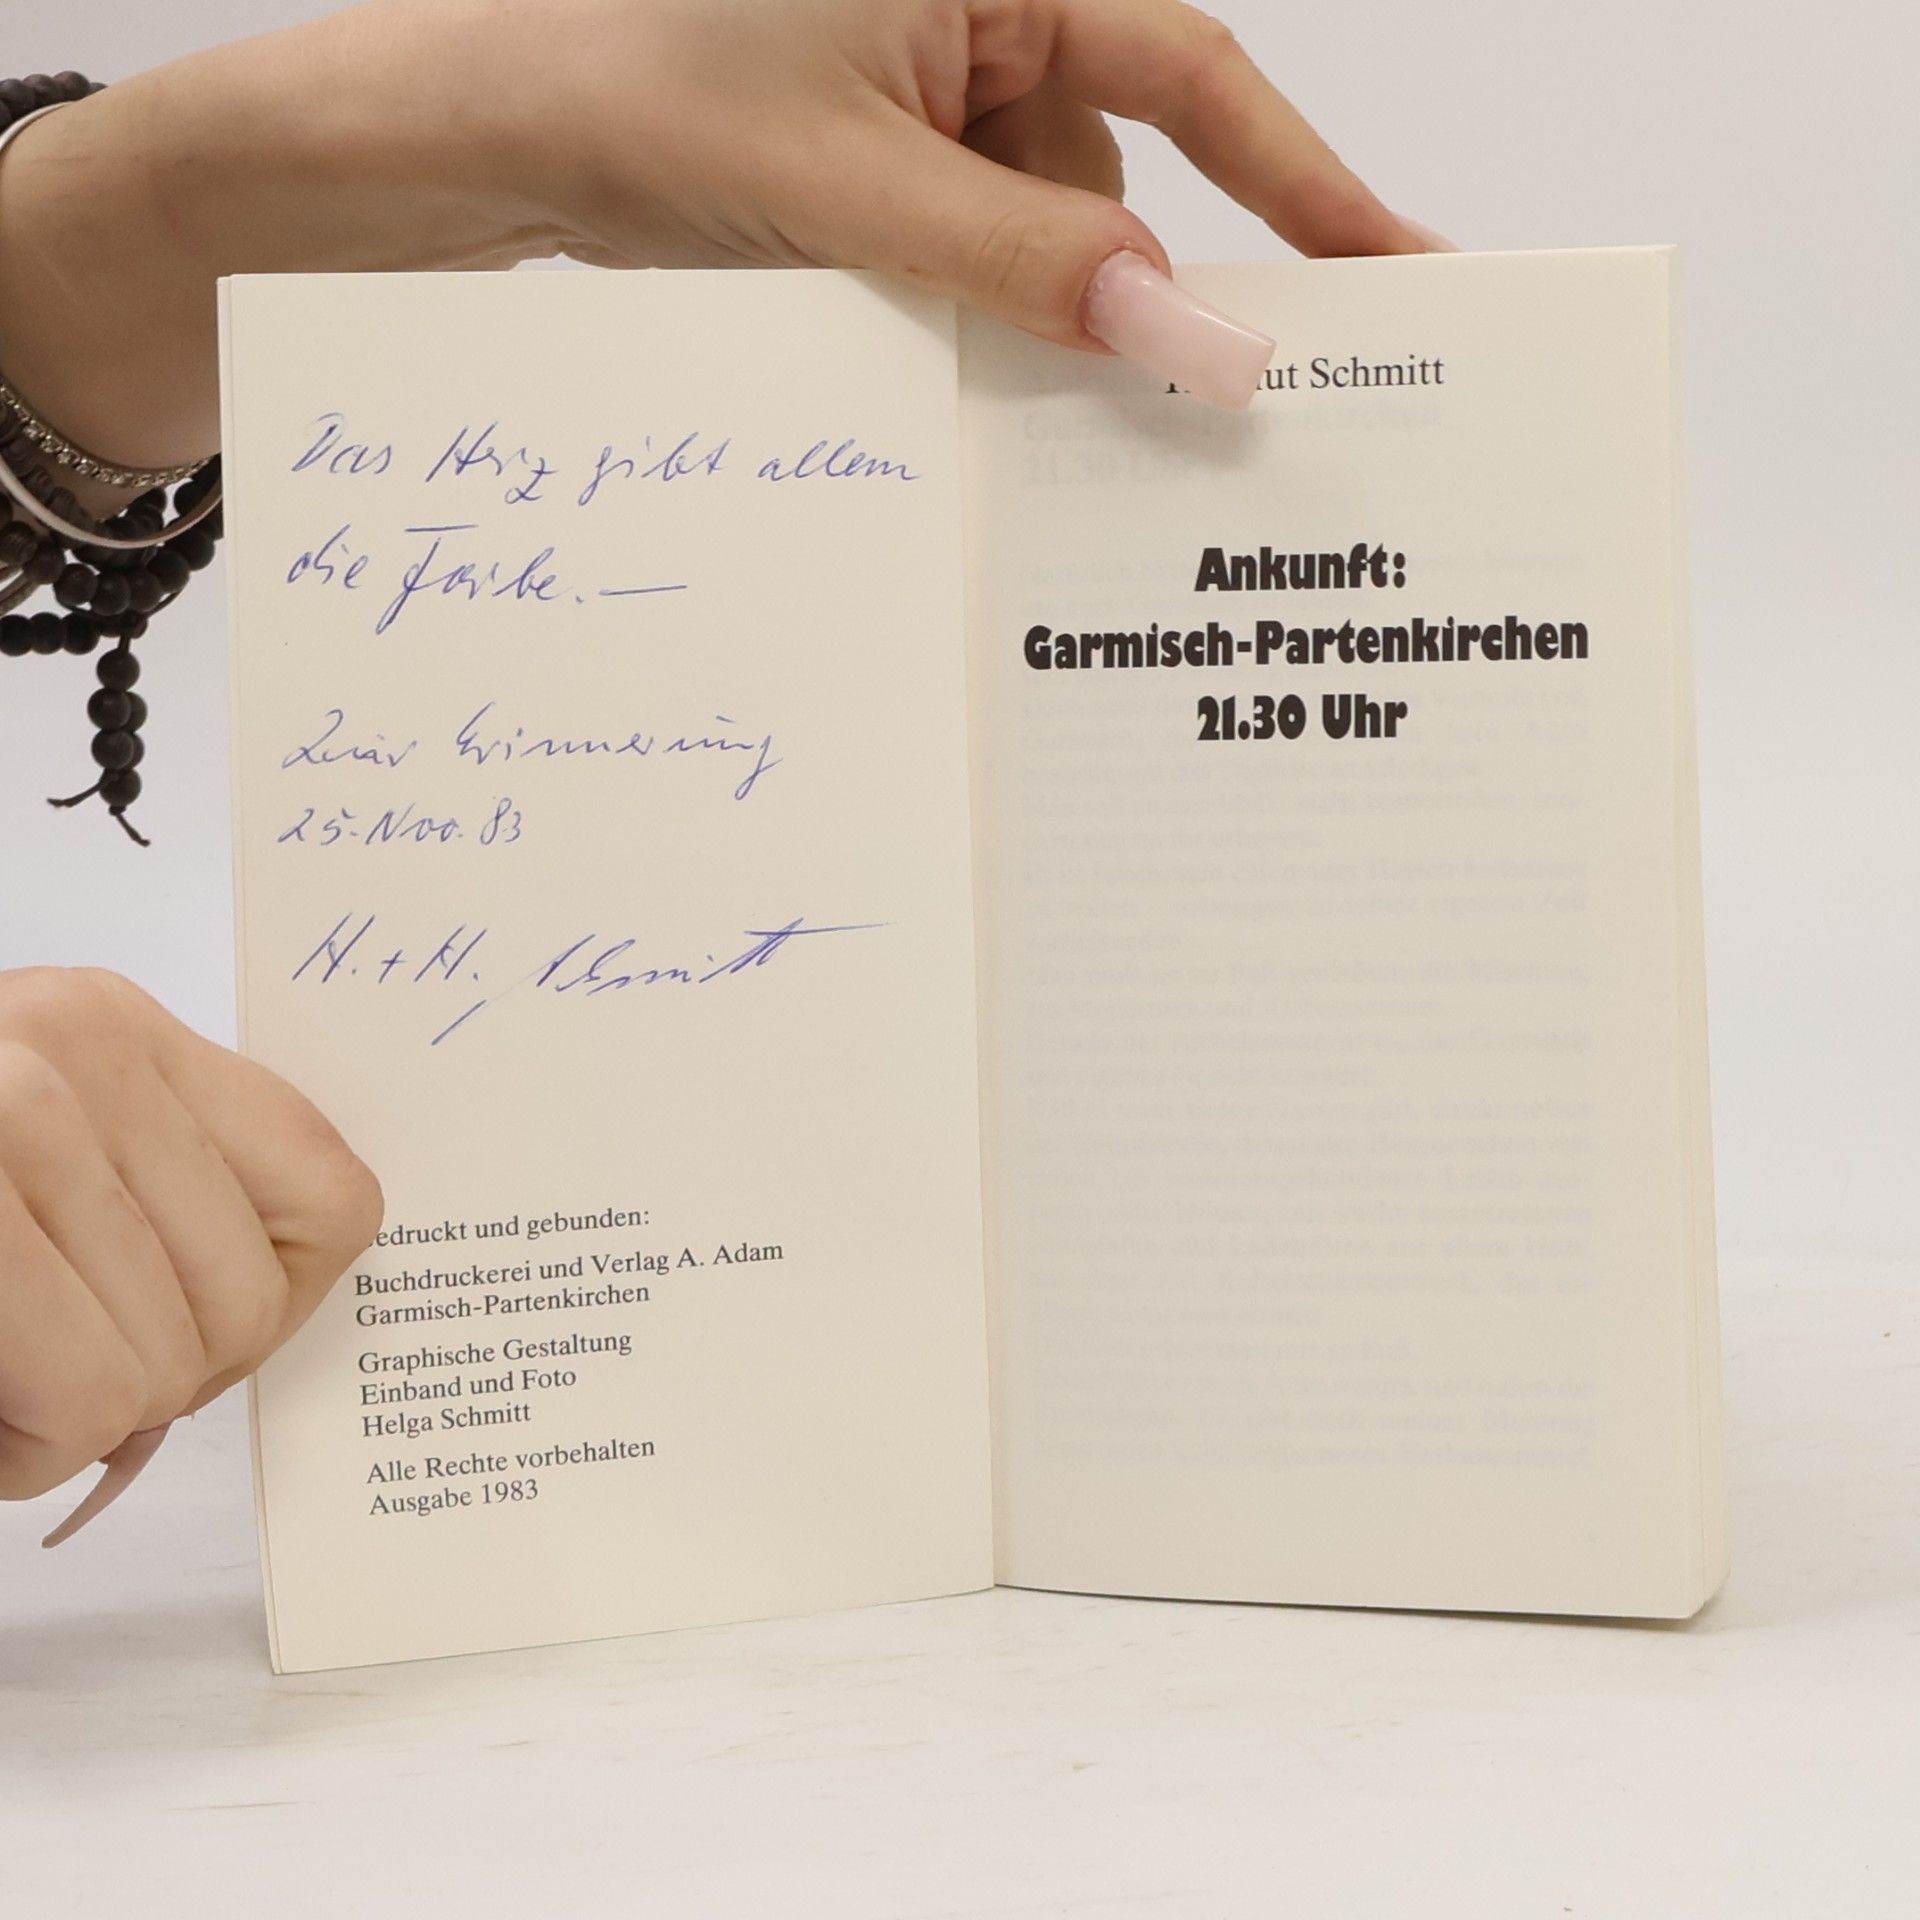 Das Herz gibt allem
die Farbe. —
Zur Erinnerung
25. Nov. 83
H. + H. Schmitt
edruckt und gebunden:
Buchdruckerei und Verlag A. Adam
Garmisch-Partenkirchen
Graphische Gestaltung
Einband und Foto
Helga Schmitt
Alle Rechte vorbehalten
Ausgabe 1983
ut Schmitt
Ankunft:
Garmisch-Partenkirchen
21.30 Uhr